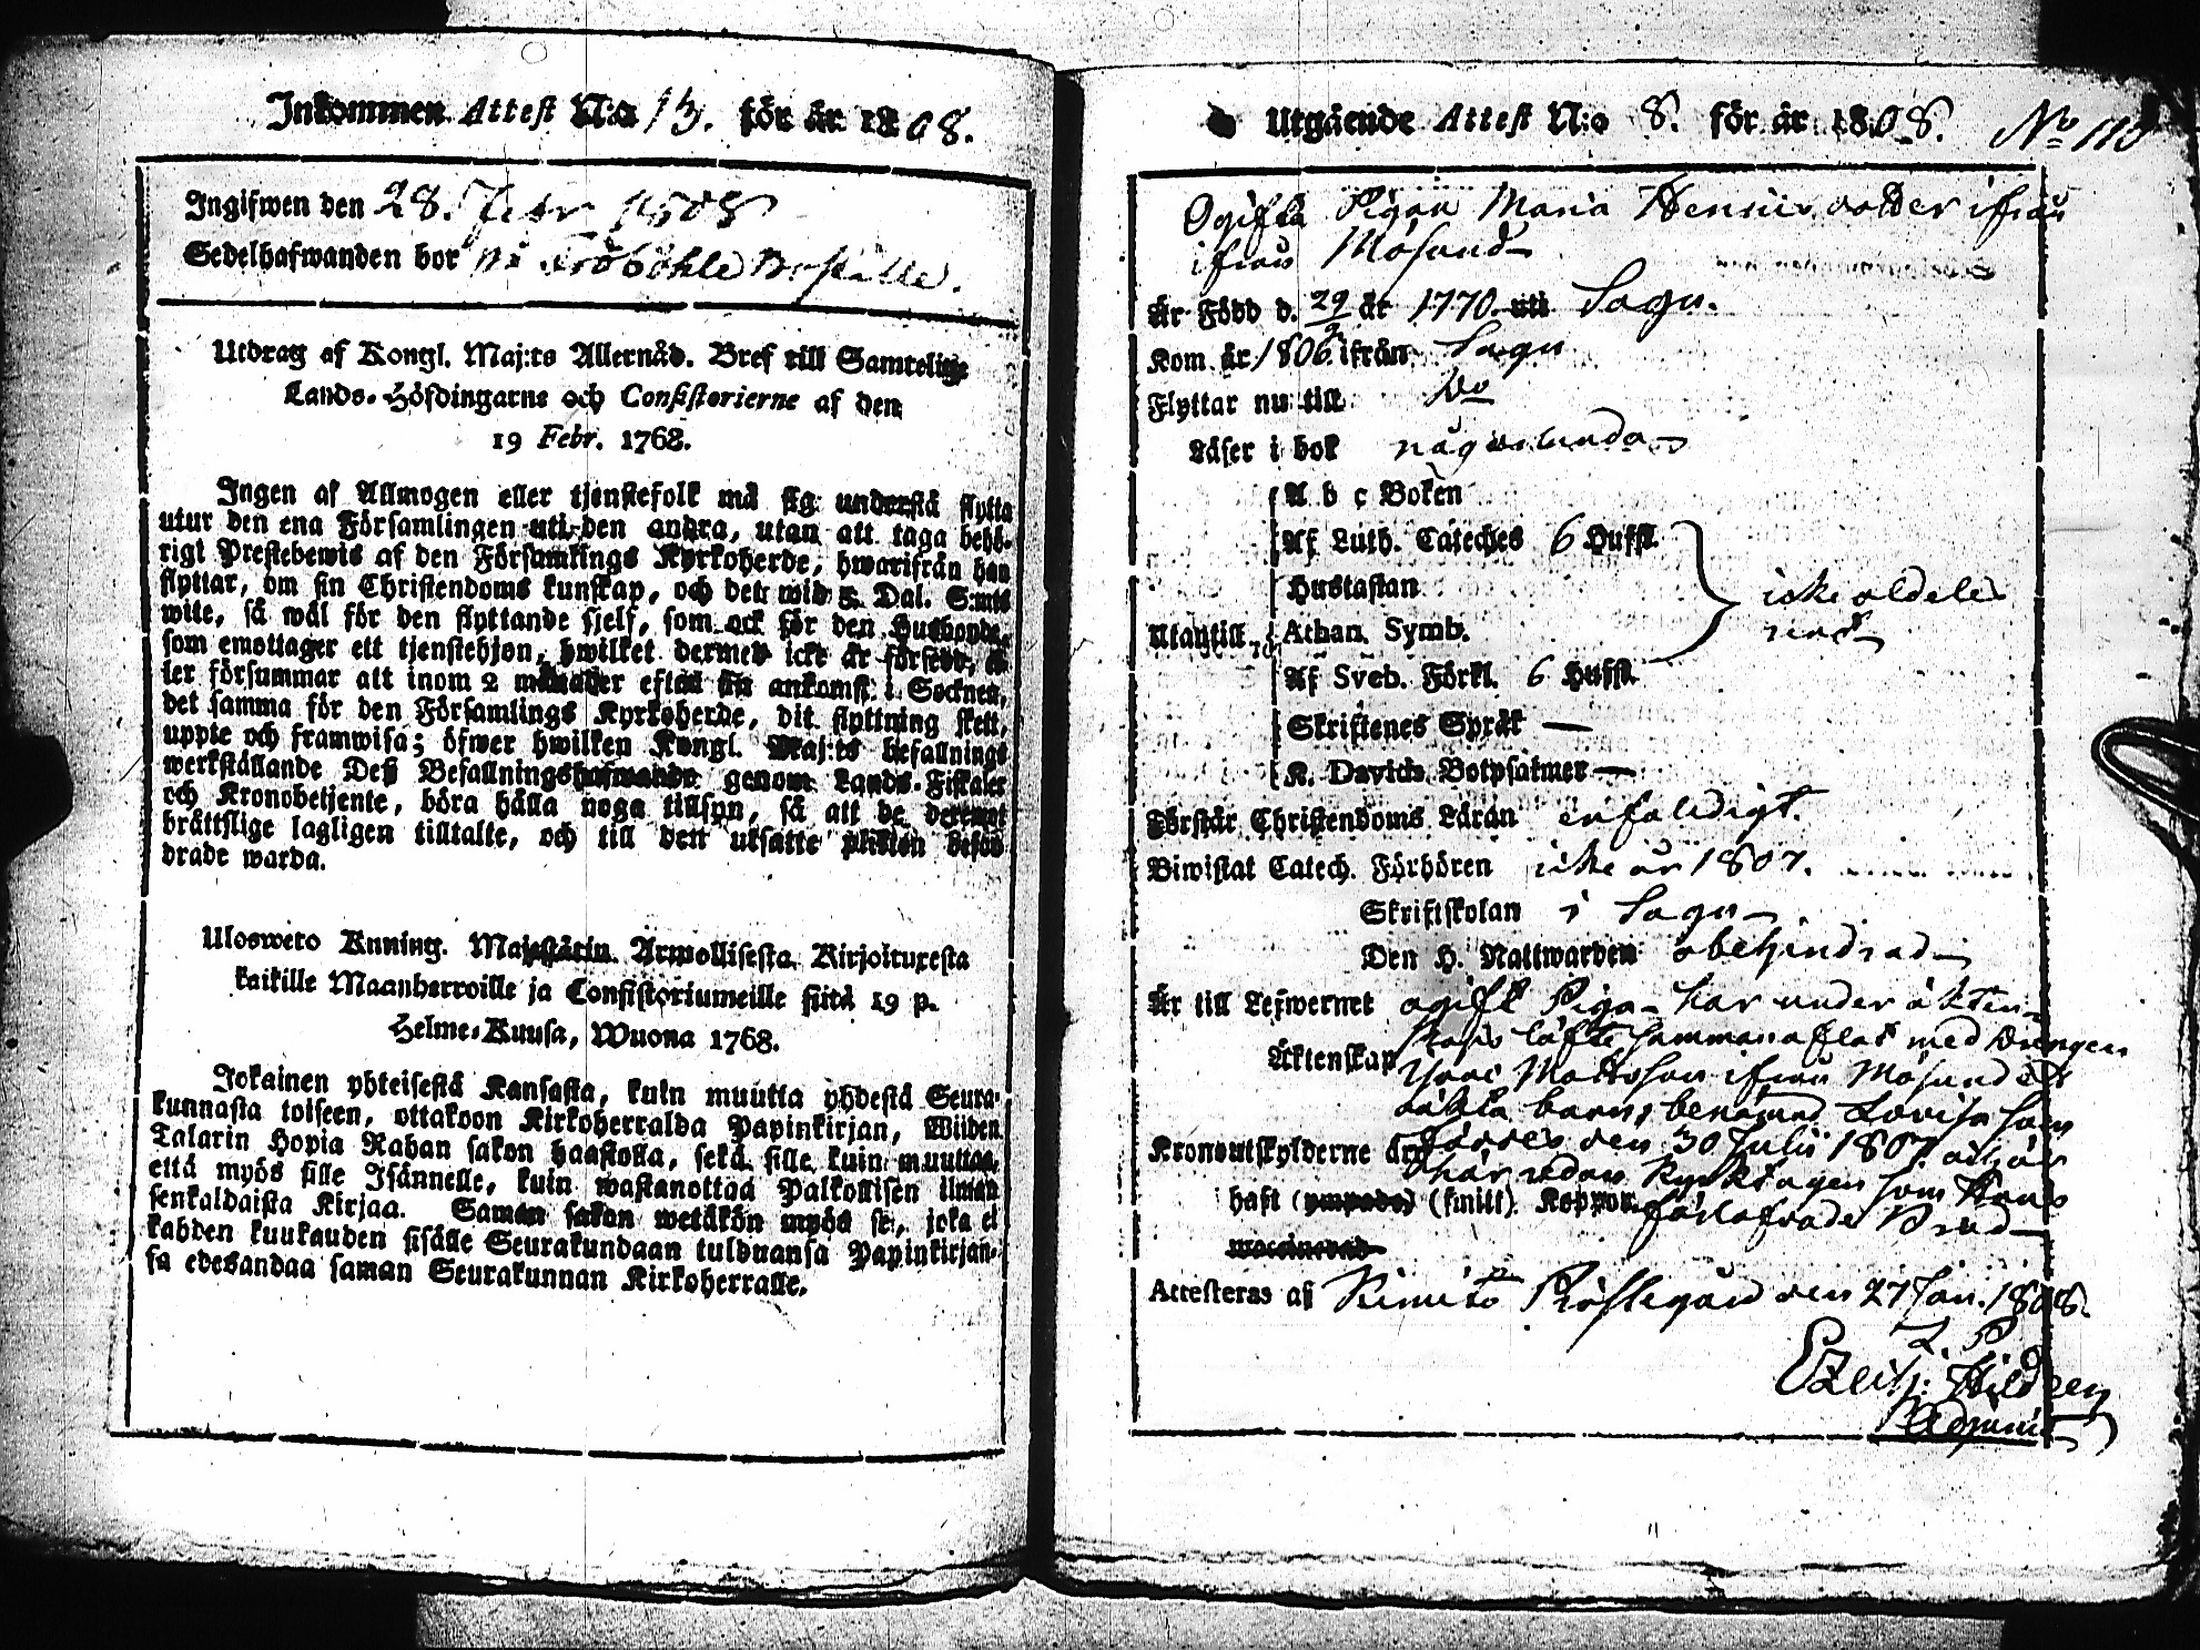 Inkommen Attest N:o 13. för år 1808.
Ingifwen den 28. Febr 1808
Sedelhafwanden bor på Fröböhle Boställe.
Utdrag af Kongl. Maj:ts Allernåd. Bref till Samtelige
Lands-Höfdingarne och Consistorierne af den
19 Febr. 1768.
Ingen af Allmogen eller tjenstefolk må sig understå flytta
utur den ena Församlingen uti den andra, utan att taga behö-
rigt Prestebewis af den Församlings Kyrkoherde, hwarifrån han
flyttar, om sin Christendoms kunskap, och det wid 5. Dal. S:mts
wite, så wäl för den flyttande sjelf, som ock för den Husbonde,
som emottager ett tjenstehjon, hwilket dermed icke är försedt, el-
ler försummar att inom 2 månader efter sin ankomst i Socknen,
det samma för den Församlings Kyrkoherde, dit flyttning skett,
uppte och framwisa; öfwer hwilken Kongl. Maj:ts befallnings
werkställande Deß Befallningshafwande genom Lands-Fiskaler
och Kronobetjente, böra hålla noga tillsyn, så att de deremot
bråttslige lagligen tilltalte, och till den utsatte plikten beford-
drade warda.
Ulosweto Kuning. Majestätin Armollisesta Kirjoituxesta
kaikille Maanherroille ja Consistoriumeille siitä 19 p.
Helme-Kuusa, Wuona 1768.
Jokainen yhteisestä Kansasta, kuin muutta yhdestä Seura-
kunnasta toiseen, ottakoon Kirkoherralda Papinkirjan, Wiiden
Talarin Hopia Rahan sakon haastolla, sekä sille kuin muuttaa,
että myös sille Isännelle, kuin wastanottaa Palkollisen ilman
senkaldaista Kirjaa. Saman sakon wetäkön myös se, joka ei
kahden kuukauden sisälle Seurakundaan tulduansa Papinkirjan-
sa edesandaa saman Seurakunnan Kirkoherralle.
Utgående Attest N:o 8. för år 1808. No 110
Ogifta Pigan Maria Henricsdotter ifrån
ifrån Mosund
Är Född d. 29/9 år 1770. uti Sagu.
Kom år 1806 ifrån Sagu
Flyttar nu till Do
Läser i bok någorlunda
A b c Boken
Af Luth. Cateches 6 Hufst.
Hustaflan icke aldeles
Utantill, Athan. Symb. rätt
Af Sveb. Förkl. 6 Hufst.
Skriftenes Språk —
K. Davids Botpsalmer —
Förstår Christendoms Läran enfaldigt.
Biwistat Catech. Förhören icke år 1807.
Skriftskolan i Sagu
Den H. Nattwarden obehindrad
Är till Lefwernet ogift Piga har under äkten-
Äktenskap skaps löfte sammanaflat med Drengen
Mattsson ifrån Mosund ett
oäkta barn, benämnd Lovisa som
Kronoutskylderne äro föddes den 30 Julii 1807 och är
här redan kyrktagen som hans
haft (ympade) (smitt) Koppor förlofvade Brud
waccinerad
Attesteras af Kimito Prästegård den 27 Jan. 1808.